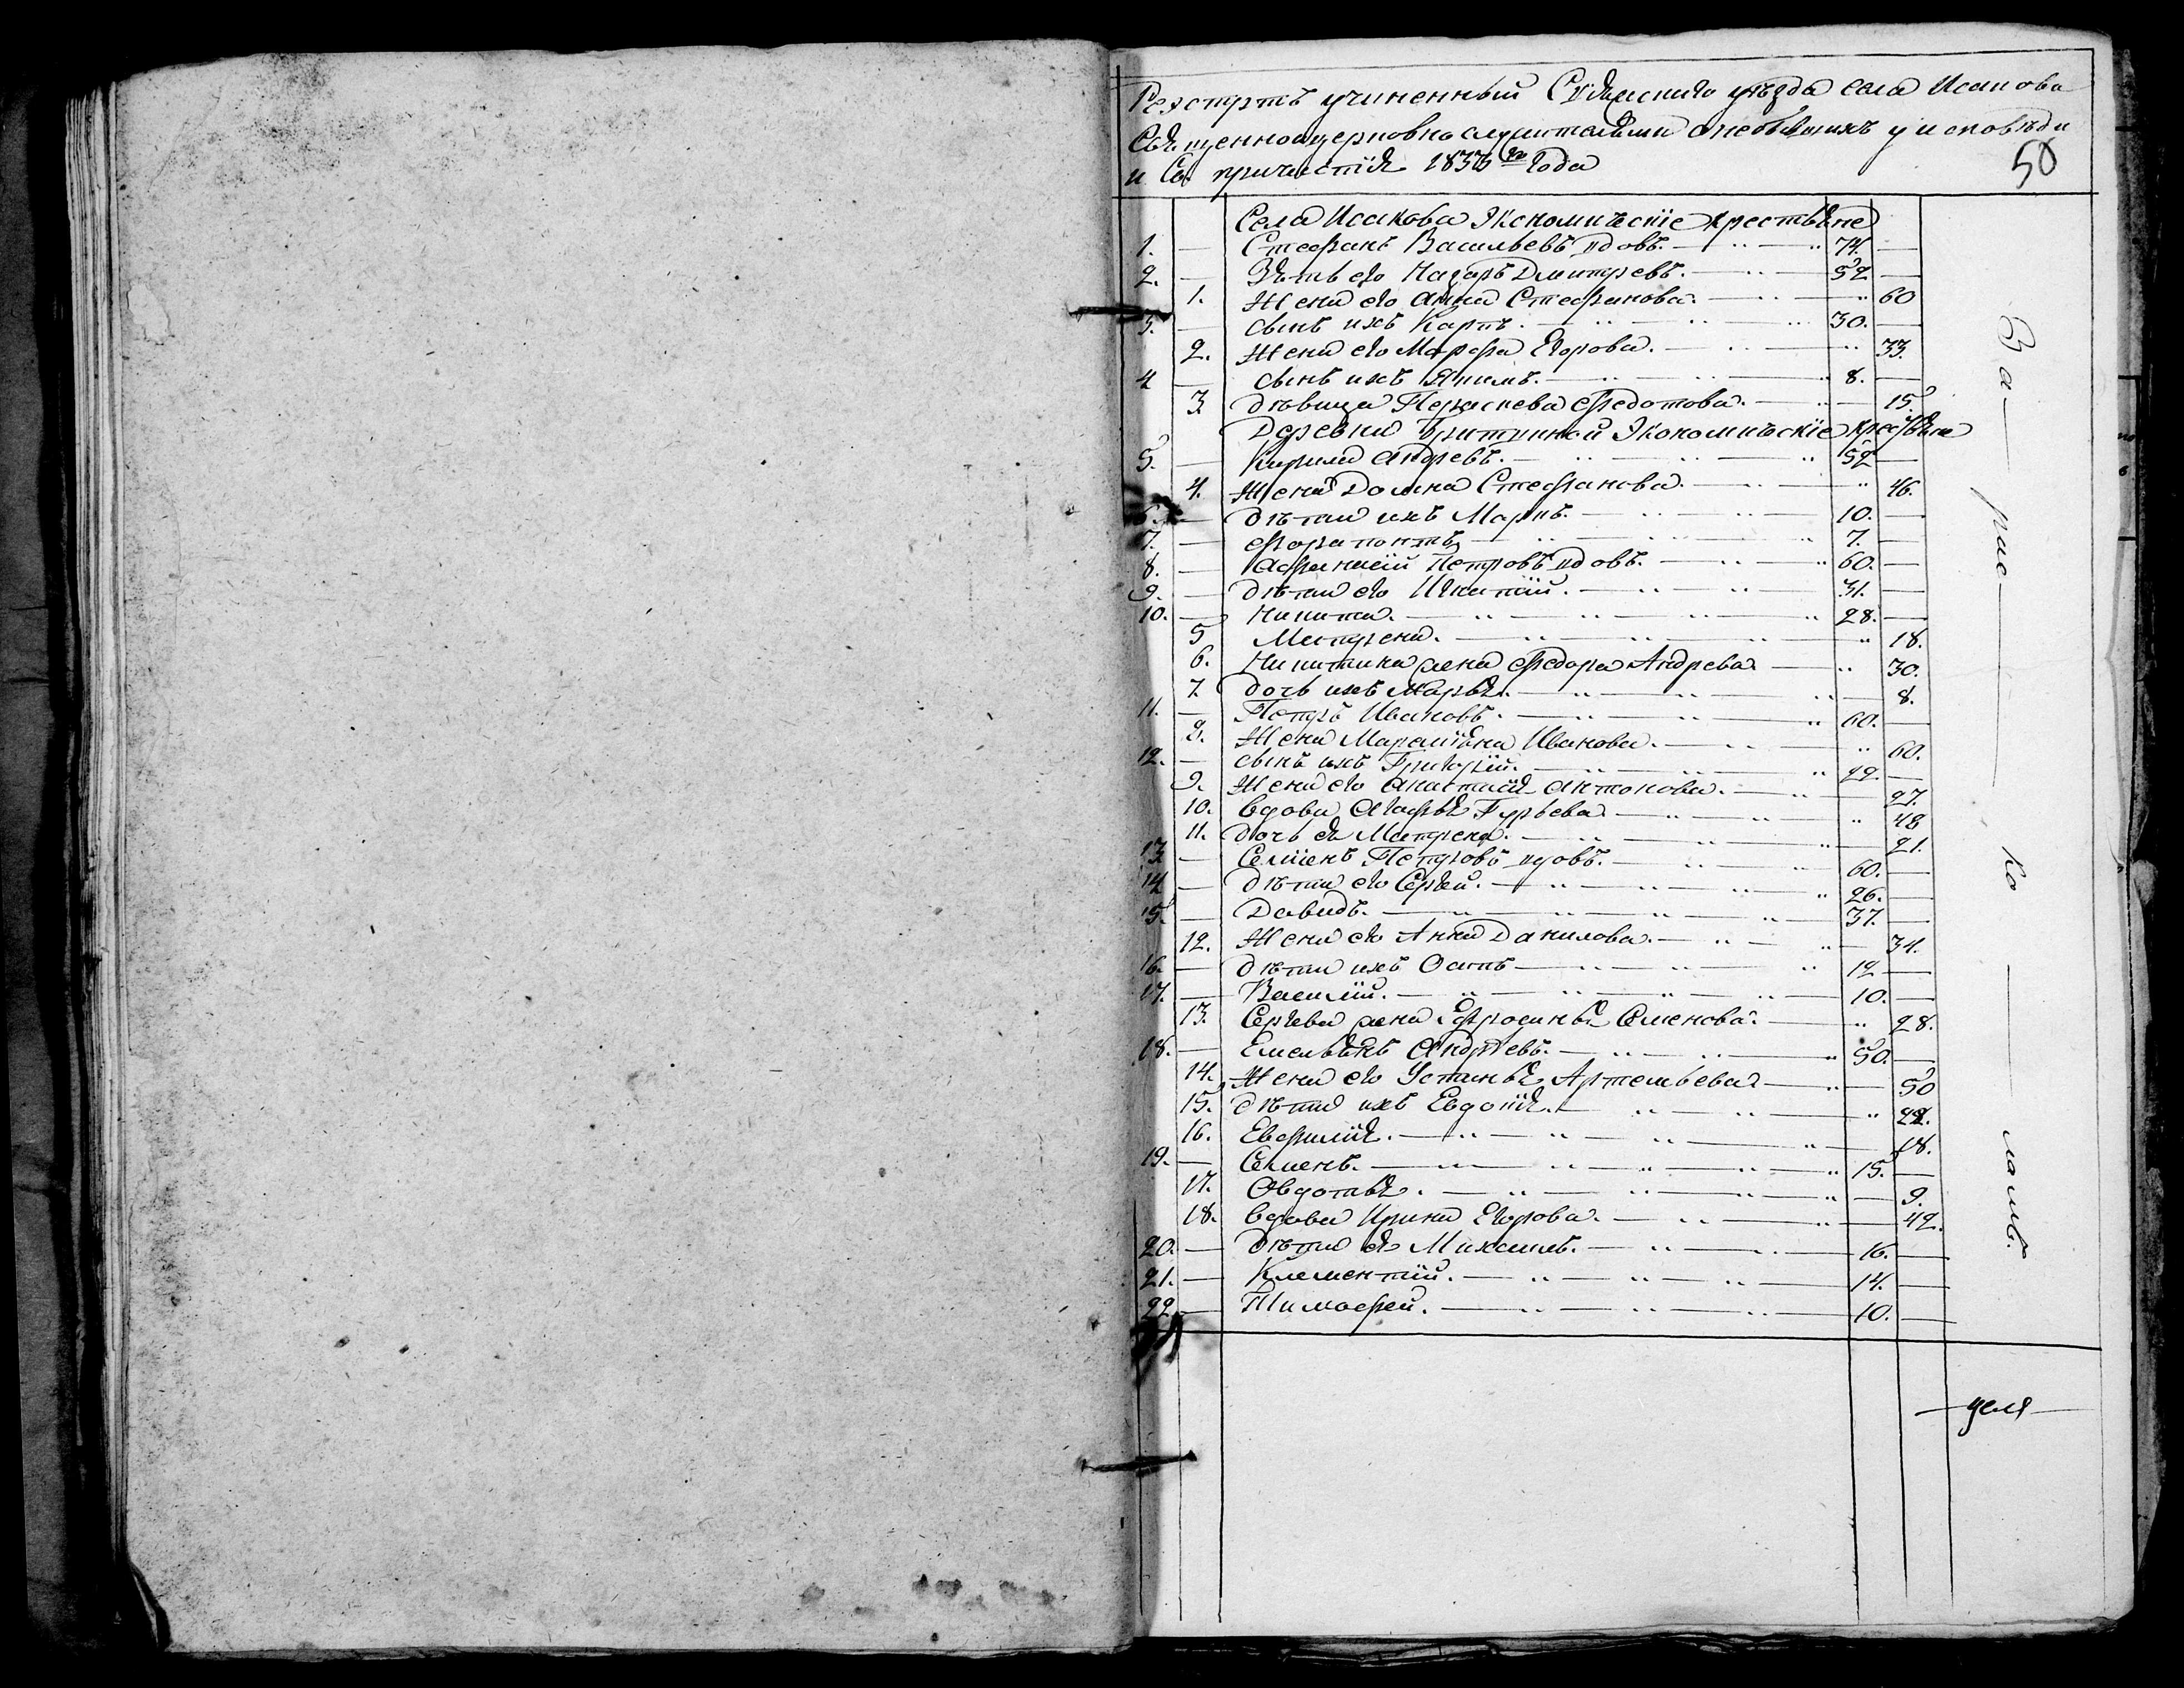 Реэстртъ учиненный Свіяжскаго уѣзда села Исакова
Священноцерковнослужителями о небывшихъ у исповѣди
и Св. причастія 1833 го года
50
Села Исакова Экономическіе крестьяне
1. — Стефанъ Васильевъ вдовъ. 74. —
2. — Зять его Назаръ Дмитревъ. 52 —
1. Жена его Анна Стефанова. 60
3. — Сынъ ихъ Карпъ. 30. —
2. Жена его Марфа Егорова. 33.
4 — Сынъ ихъ Якимъ. 8. —
3. Дѣвица Параскева Федотова. 15.
Деревни Экономическіе крестьяне
5. — Кирила Андревъ. 52 —
4. Жена Домна Стефанова. 46.
6. — Дѣти ихъ Маркъ. 10. —
7. — Ферапонтъ 7. —
8. — Афанасій Петровъ вдовъ. 60. —
9. — Дѣти его Игнатій. 31. —
10. — Никита. 28. —
5 Матрена. 18.
6. Никитина жена Федора Андрева 30.
7. Дочь ихъ Марья. 8.
11. — Петръ Ивановъ. 60. —
8. Жена Марѳа Иванова. 60.
12. — Сынъ ихъ Григорій. 22. —
9. Жена его Анастасія Антонова. 27.
10. Вдова Агафья Гурьева 48
11. Дочь ея Матрена. 21.
13. — Семіенъ Петровъ вдовъ. 60. —
14. — Дѣти его Сергей. 26. —
15. — Давидъ. 37. —
12. Жена его Анна Данилова. 34.
16. — Дѣти ихъ Осипъ 12 —
17. — Василій. 10. —
13. Сергева жена Ефросинья Семенова. 28.
18. — Емельянъ Андревъ. 50. —
14. Жена его Устинья Артемьева 50
15. Дѣти ихъ Евдокія. 22.
16. Евфимія. 18.
19. — Семенъ. 15. —
17. Овдотья. 9.
18. Вдова Ирина Егорова. 42.
20. — Дѣти ея Михаилъ. 16. —
21. — Клементій. 14. —
22. — Тимофей. 10. —
За — рас — ко — ламъ.